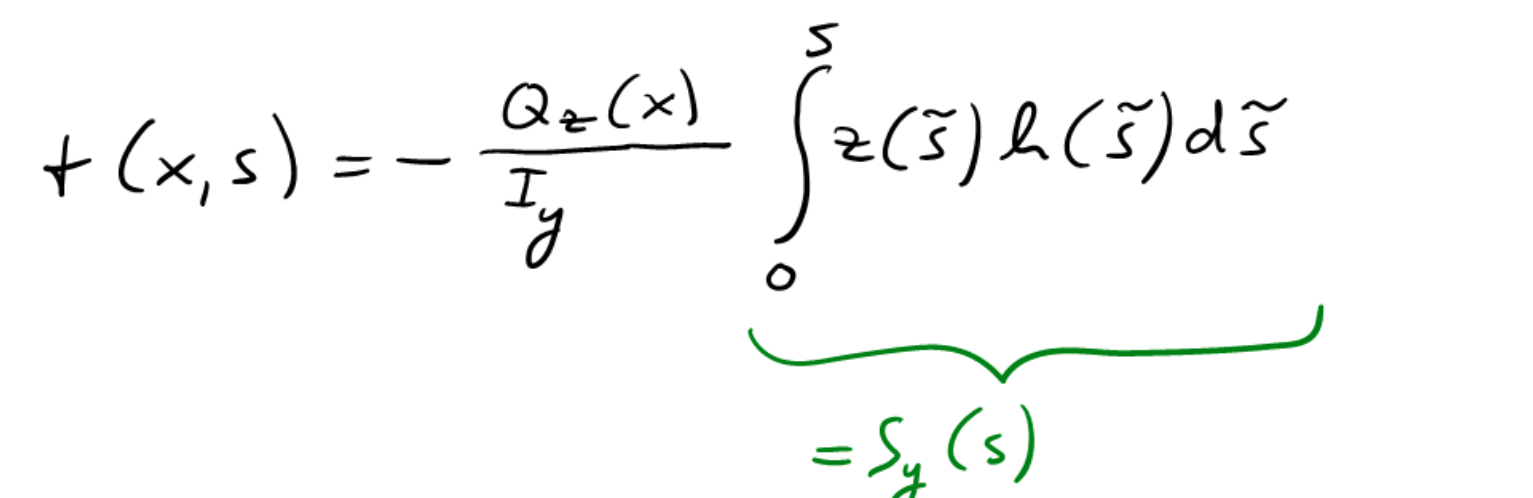 t(x,s) = - \frac{Q_z(x)}{I_y} \int_0^s z(\tilde{s}) h(\tilde{s}) d\tilde{s}
= S_y(s)